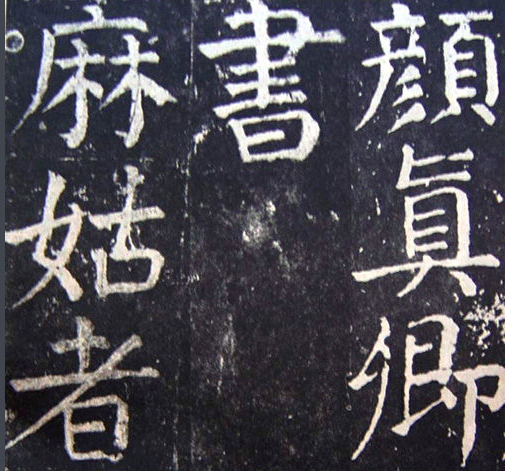 顏真卿
書
麻姑者